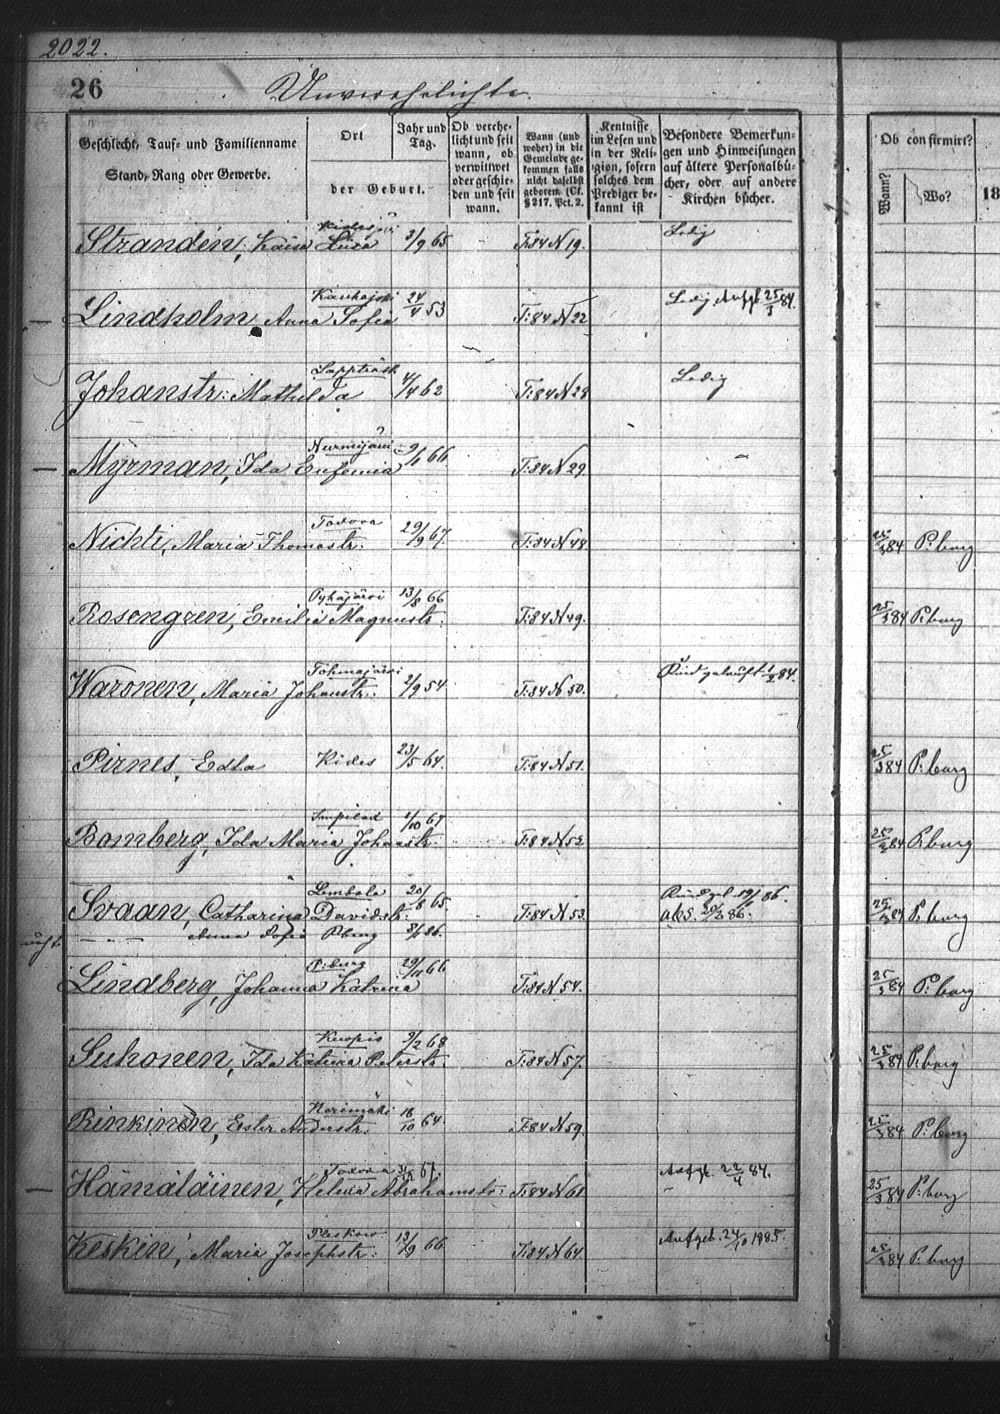 2022.
26 Unverehelichte.
Geschlecht, Tauf- und Familienname
Stand, Rang oder Gewerbe.
Ort
der Geburt.
Jahr und
Tag.
Ob verehe-
licht und seit
wann, ob
verwittwet
oder geschie-
den und seit
wann.
Wann (und
woher) in die
Gemeinde ge-
kommen falls
nicht daselbst
geboren. (Cf.
§ 217. Pct. 2.
Kentnisse
im Lesen und
in der Reli-
gion, sofern
solches dem
Prediger be-
kannt ist
Besondere Bemerkun-
gen und Hinweisungen
auf ältere Personalbü-
cher, oder auf andere
Kirchen bücher.
Ob confirmirt?
Wann? Wo? 18
Strandén, Kaisa Lusa 3/9 65 T:84 N 19. Ledig
Kauhajoki
Lindholm Anna Sofia 24/4 53 T:84 N 22 Ledig Aufgb. 25/3 84.
Lappträsk
Johanstr: Mathilda 4/4 62 T:84 N 28 Ledig
Nurmijärvi
Myrman, Ida Eufemia 9/1 66 T:84 N 29.
Toxova
Nichti, Maria Thomastr. 29/9 67 T:84 N 48. 25/3 84 P:burg
Pyhäjärvi
Rosengren, Emilia Magnustr. 13/8 66 T:84 N 49. 25/3 84 P:burg
Tohmajärvi
Waronen, Maria Johanstr. 2/9 54 T:84 N 50. 1/2 84.
Pirnes, Edla Kides 23/5 64. T:84 N 51. 25/3 84 P:burg
Impilax
Bomberg, Ida Maria Johanstr. 1/10 67 T:84 N 52 25/3 84 P:burg
Lembala
Svaan, Catharina Davidstr. 20/8 65 T:84 N 53. 19/ 86. 25/3 84 P:burg
Abs. 20/2 86.
Anna Sofia P.burg 8/1 86.
P:burg
Lindberg, Johanna Katrina 29/11 66 T:84 N 54. 25/3 84 P:burg
Kuopio
Suhonen, Ida Katrina Peterstr. 3/2 68 T:84 N 57. 25/3 84 P:burg
Kerimäki
Rinkinen, Ester Anderstr. 18/10 64 T:84 N 59. 25/3 84 P:burg
Toxova
Hämäläinen, Helena Abrahamstr: 67. T:84 N 61 Aufgb. 22/4 84. 25/3 84 P:burg
Pleskow
Keskin, Maria Josephstr: 13/9 66 T:84 N 64. Aufgeb. 24/10 1885. 25/3 84 P:burg